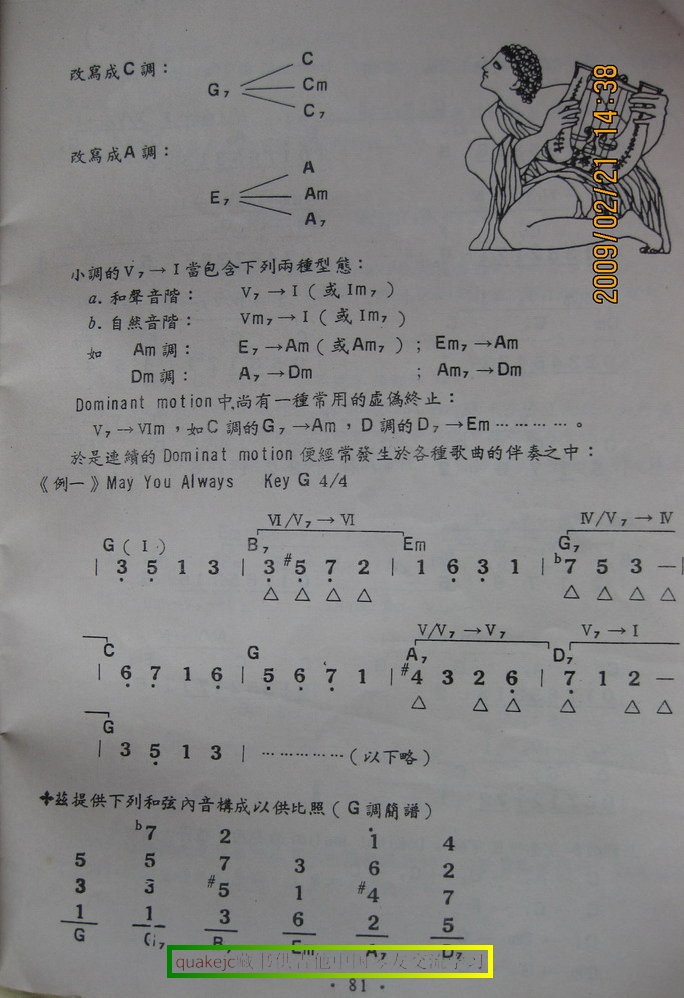 改寫成C調：
G₇
C
Cm
C₇
改寫成A調：
E₇
A
Am
A₇
2009/02/21 14:38
小調的V₇→I當包含下列兩種型態：
a. 和聲音階： V₇→I（或Im₇）
b. 自然音階： Vm₇→I（或Im₇）
如 Am調： E₇→Am（或Am₇）； Em₇→Am
Dm調： A₇→Dm ； Am₇→Dm
Dominant motion中尚有一種常用的虛偽終止：
V₇→VIm，如C調的G₇→Am，D調的D₇→Em…………。
於是連續的Dominat motion便經常發生於各種歌曲的伴奏之中：
《例一》May You Always Key G 4/4
VI/V₇→VI IV/V₇→IV
G（I） B₇ Em G₇
| 3̣ 5̣ 1 3 | 3̣ #5̣ 7̣ 2 | 1 6̣ 3̣ 1 | b7 5 3 — |
△ △ △ △ △ △ △ △
V/V₇→V₇ V₇→I
C G A₇ D₇
| 6̣ 7̣ 1 6̣ | 5̣ 6̣ 7̣ 1 | #4 3 2 6̣ | 7̣ 1 2 —
△ △ △ △ △ △
G
| 3 5̣ 1 3 | ………………（以下略）
✤茲提供下列和弦內音構成以供比照（G調簡譜）
b7 2 1̇ 4
5 5 7 3 6 2
3 3 #5 1 #4 7
1 1 3 6 2 5
G G₇ B₇ Em A₇ D₇
quakejc藏书供吉他中国琴友交流学习
· 81 ·